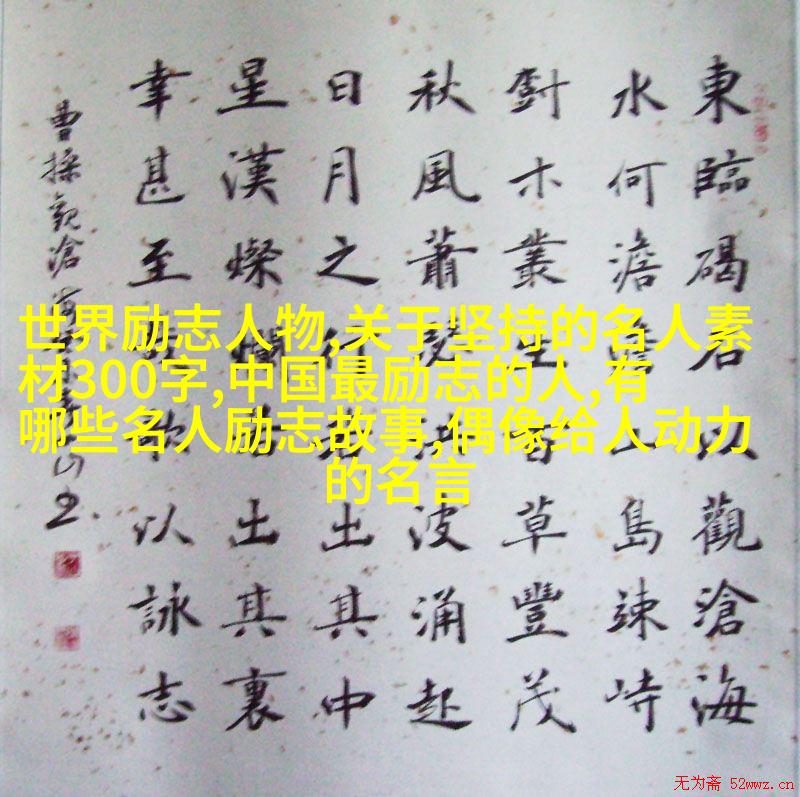 東臨碣石以觀滄海
水何澹澹山島竦峙
木叢生百草豐茂
秋風蕭瑟洪波涌起
日月之行若出其中
星漢燦爛若出其裏
幸甚至哉歌以詠志
曹操觀滄
世界励志人物,关于坚持的名人素
材300字,中国最励志的人,有
哪些名人励志故事,偶像给人动力
的名言
无为斋 52wwz.cn